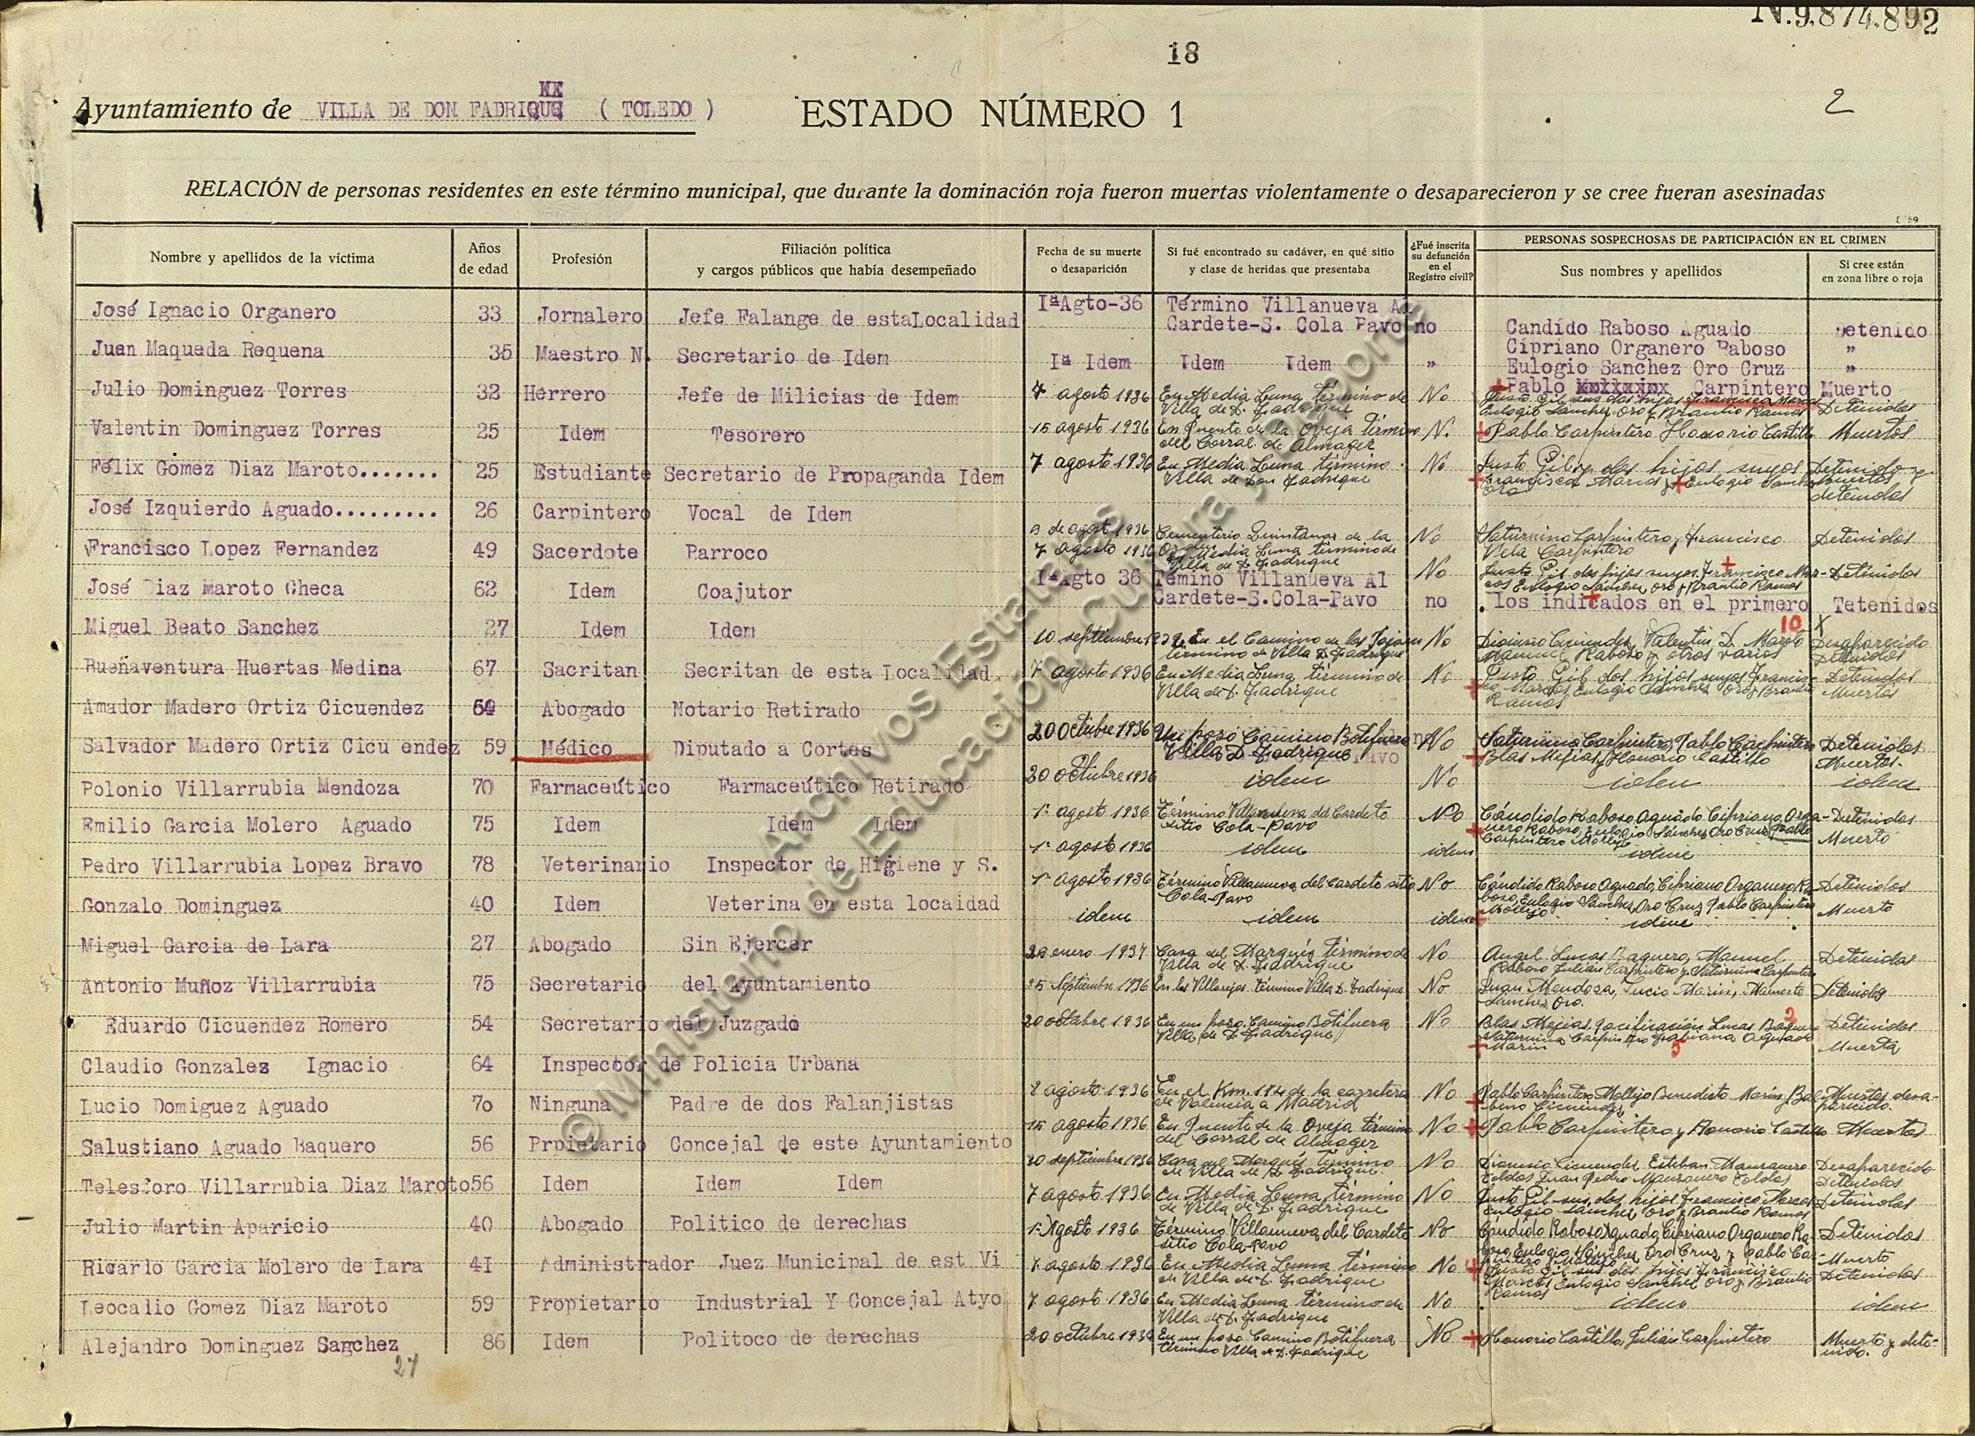 N.9.874.892
18
2
Ayuntamiento de VILLA DE DON FADRIQUE ( TOLEDO )
ESTADO NÚMERO 1
RELACIÓN de personas residentes en este término municipal, que durante la dominación roja fueron muertas violentamente o desaparecieron y se cree fueran asesinadas
Nombre y apellidos de la víctima
Años de edad
Profesión
Filiación política y cargos públicos que había desempeñado
Fecha de su muerte o desaparición
Si fué encontrado su cadáver, en qué sitio y clase de heridas que presentaba
¿Fué inscrita su defunción en el Registro civil?
PERSONAS SOSPECHOSAS DE PARTICIPACIÓN EN EL CRIMEN
Sus nombres y apellidos
Si cree están en zona libre o roja
José Ignacio Organero 33 Jornalero Jefe Falange de esta Localidad Iª Agto-36 Término Villanueva Al Cardete-S. Cola Pavo no Candído Raboso Aguado Detenido
Cipriano Organero Raboso "
Juan Maqueda Requena 35 Maestro N. Secretario de Idem Iª Idem Idem Idem " Eulogio Sanchez Oro Cruz "
Pablo Carpintero Muerto
Julio Dominguez Torres 32 Herrero Jefe de Milicias de Idem 7 agosto 1936 En Media Luna término de Villa de D. Fadrique No Justo Gil sus dos hijos Francisco Marcos Eulogio Sanchez Oro y Braulio Ramos Detenidos
Valentin Dominguez Torres 25 Idem Tesorero 15 agosto 1936 En Puente de la Oveja término del Corral de Almager N. Pablo Carpintero Honorio Castillo Muertos
Félix Gomez Diaz Maroto....... 25 Estudiante Secretario de Propaganda Idem 7 agosto 1936 En Media Luna término Villa de Don Fadrique No Justo Gil y dos hijos suyos Francisco Marcos y Eulogio Sanchez Oro Detenido y muertos detenidos
José Izquierdo Aguado......... 26 Carpintero Vocal de Idem
de agosto 1936 Cementerio Quintanar de la Orden No Saturnino Carpintero y Francisco Vela Carpintero Detenidos
Francisco Lopez Fernandez 49 Sacerdote Parroco 7 agosto 1936 En Media Luna término de Villa de D. Fadrique No Justo Gil dos hijos suyos Francisco Marcos Eulogio Sanchez Oro y Braulio Ramos Detenidos
José Diaz Maroto Checa 62 Idem Coajutor Iª Agto 36 Temino Villanueva Al Cardete-S.Cola-Pavo no los indicados en el primero Tetenidos
10
Miguel Beato Sanchez 27 Idem Idem 10 septiembre 1936 En el Camino de los término de Villa D. Fadrique No Dionisio Cicuendez, Valentin D. Maroto Manuel Raboso y otros varios Desaparecido Detenidos
Buenaventura Huertas Medina 67 Sacritan Secritan de esta Localidad 7 agosto 1936 En Media Luna término de Villa de D. Fadrique No Justo Gil dos hijos suyos Francisco Marcos Eulogio Sanchez Oro y Braulio Ramos Detenidos Muertos
Amador Madero Ortiz Cicuendez Abogado Notario Retirado
20 Octubre 1936 Un poso Camino Botifuera Villa D. Fadrique No Saturnino Carpintero, Pablo Carpintero Blas Mejias, Honorio Castillo Detenidos Muertos.
Salvador Madero Ortiz Cicu endez 59 Médico Diputado a Cortes 20 octubre 1936 idem No idem idem
Polonio Villarrubia Mendoza 70 Farmaceútico Farmaceútico Retirado 1º agosto 1936 Término Villanueva del Cardete sitio Cola-Pavo No Cándido Raboso Aguado Cipriano Organero Raboso, Eulogio Sánchez Oro Cruz, Pablo Carpintero Mollejo Detenidos Muerto
Emilio Garcia Molero Aguado 75 Idem Idem Idem 1º agosto 1936 idem idem idem
Pedro Villarrubia Lopez Bravo 78 Veterinario Inspector de Higiene y S. 1º agosto 1936 Término Villanueva del Cardete sitio Cola-Pavo No Cándido Raboso Aguado, Cipriano Organero Raboso, Eulogio Sánchez Oro Cruz, Pablo Carpintero Mollejo Detenidos Muerto
Gonzalo Dominguez 40 Idem Veterina en esta locaidad idem idem idem idem
Miguel Garcia de Lara 27 Abogado Sin Ejercer enero 1937 Casa del Marqués término de Villa de D. Fadrique No Angel Lucas Baquero, Manuel Raboso Julian Carpintero y Saturnino Carpintero Detenidos
Antonio Muñoz Villarrubia 75 Secretario del Ayuntamiento 25 Septiembre 1936 En los Villarejos término Villa D. Fadrique No Juan Mendoza, Lucio Marin, Mamerto Sanchez Oro. Detenidos
Eduardo Cicuendez Romero 54 Secretario del Juzgado 20 octubre 1936 En un poso Camino Botifuera Villa de D. Fadrique No Blas Mejias, Pacificación Lucas Baquero Saturnino Carpintero Fabiana Aguado Marin Detenidos Muerta
Claudio Gonzales Ignacio 64 Inspector de Policia Urbana
8 agosto 1936 En el Km. 114 de la carretera de Valencia a Madrid No Pablo Carpintero Mollejo Benedicto Marin, Cicuendez Muertos desaparecido.
Lucio Domiguez Aguado 7o Ninguna Padre de dos Falanjistas 15 agosto 1936 En Puente de la Oveja término del Corral de Almager No Pablo Carpintero y Honorio Castillo Muertos
Salustiano Aguado Baquero 56 Propietario Concejal de este Ayuntamiento 20 septiembre 1936 Casa del Marqués término de Villa de D. Fadrique. No Dionisio Cicuendez, Esteban Manzanero Toldos Juan Pedro Manzanero Toldos Desaparecido Detenidos
Telesforo Villarrubia Diaz Maroto 56 Idem Idem Idem 7 agosto 1936 En Media Luna término de Villa de D. Fadrique No Justo Gil sus dos hijos Francisco Marcos Eulogio Sánchez Oro y Braulio Ramos Detenidos
Julio Martin Aparicio 40 Abogado Politico de derechas 1º Agosto 1936 Término Villanueva del Cardete sitio Cola-Pavo No Cándido Raboso Aguado, Cipriano Organero Raboso, Eulogio Sánchez Oro Cruz y Pablo Carpintero Mollejo Detenidos Muerto
Ricario Garcia Molero de Lara 4I Administrador Juez Municipal de est Vi 7 agosto 1936 En Media Luna término de Villa de D. Fadrique No Justo Gil sus dos hijos Francisco Marcos Eulogio Sanchez Oro y Braulio Ramos Detenidos
Leocalio Gomez Diaz Maroto 59 Propietario Industrial Y Concejal Atyo 7 agosto 1936 En Media Luna término de Villa de D. Fadrique No idem idem
Alejandro Dominguez Sanchez 86 Idem Politoco de derechas 20 octubre 1936 En un poso Camino Botifuera término Villa de D. Fadrique No Honorio Castillo, Julián Carpintero Muerto y detenido.
27
© Ministerio de Educación, Cultura y Deporte
Archivos Estatales